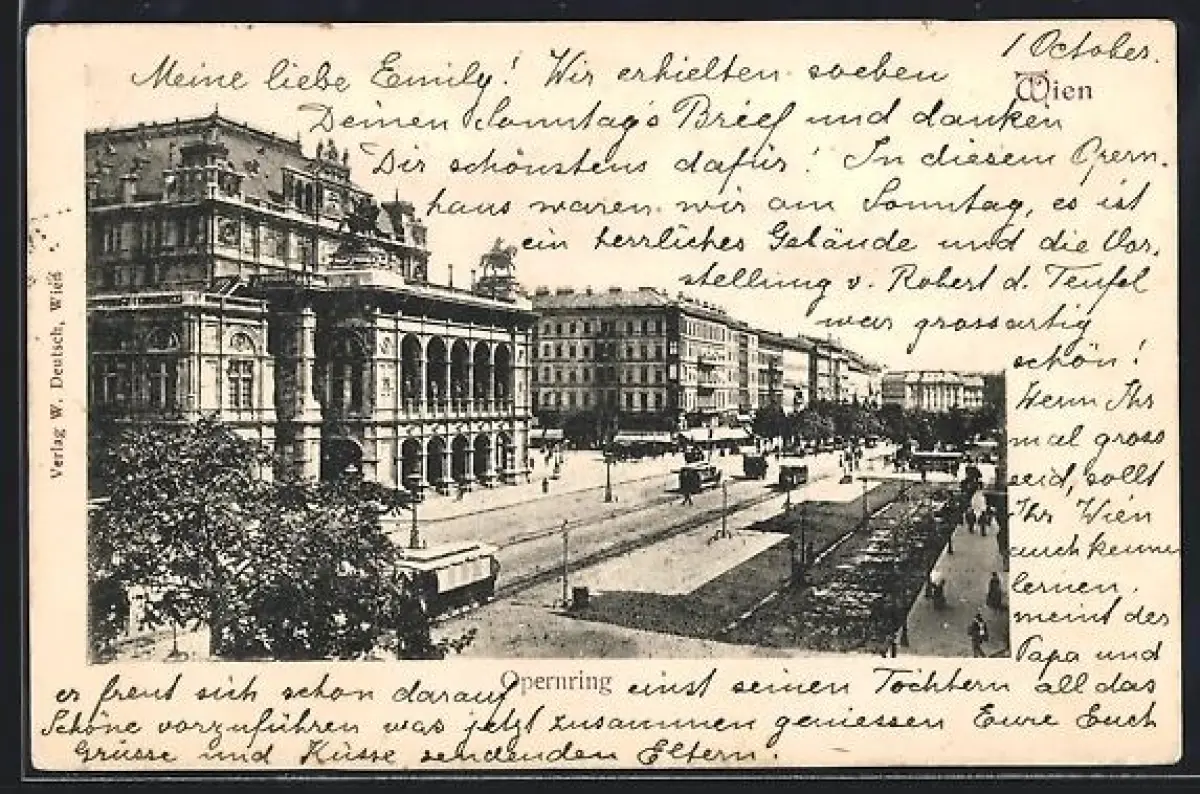 1 October.
Wien
Meine liebe Emily! Wir erhielten soeben
Deinen Sonntag's Brief und danken
Dir schönstens dafür! In diesem Opern-
haus waren wir am Sonntag, es ist
ein herrliches Gebäude und die Vor-
stellung v. Robert d. Teufel
war grossartig
schön!
Wenn Ihr
mal gross
seid, sollt
Ihr Wien
auch kennen
lernen,
meint der
Papa und
er freut sich schon darauf einst seinen Töchtern all das
Schöne vorzuführen was jetzt zusammen geniessen Eure Euch
Grüsse und Küsse sendenden Eltern.
Opernring
Verlag W. Deutsch, Wien